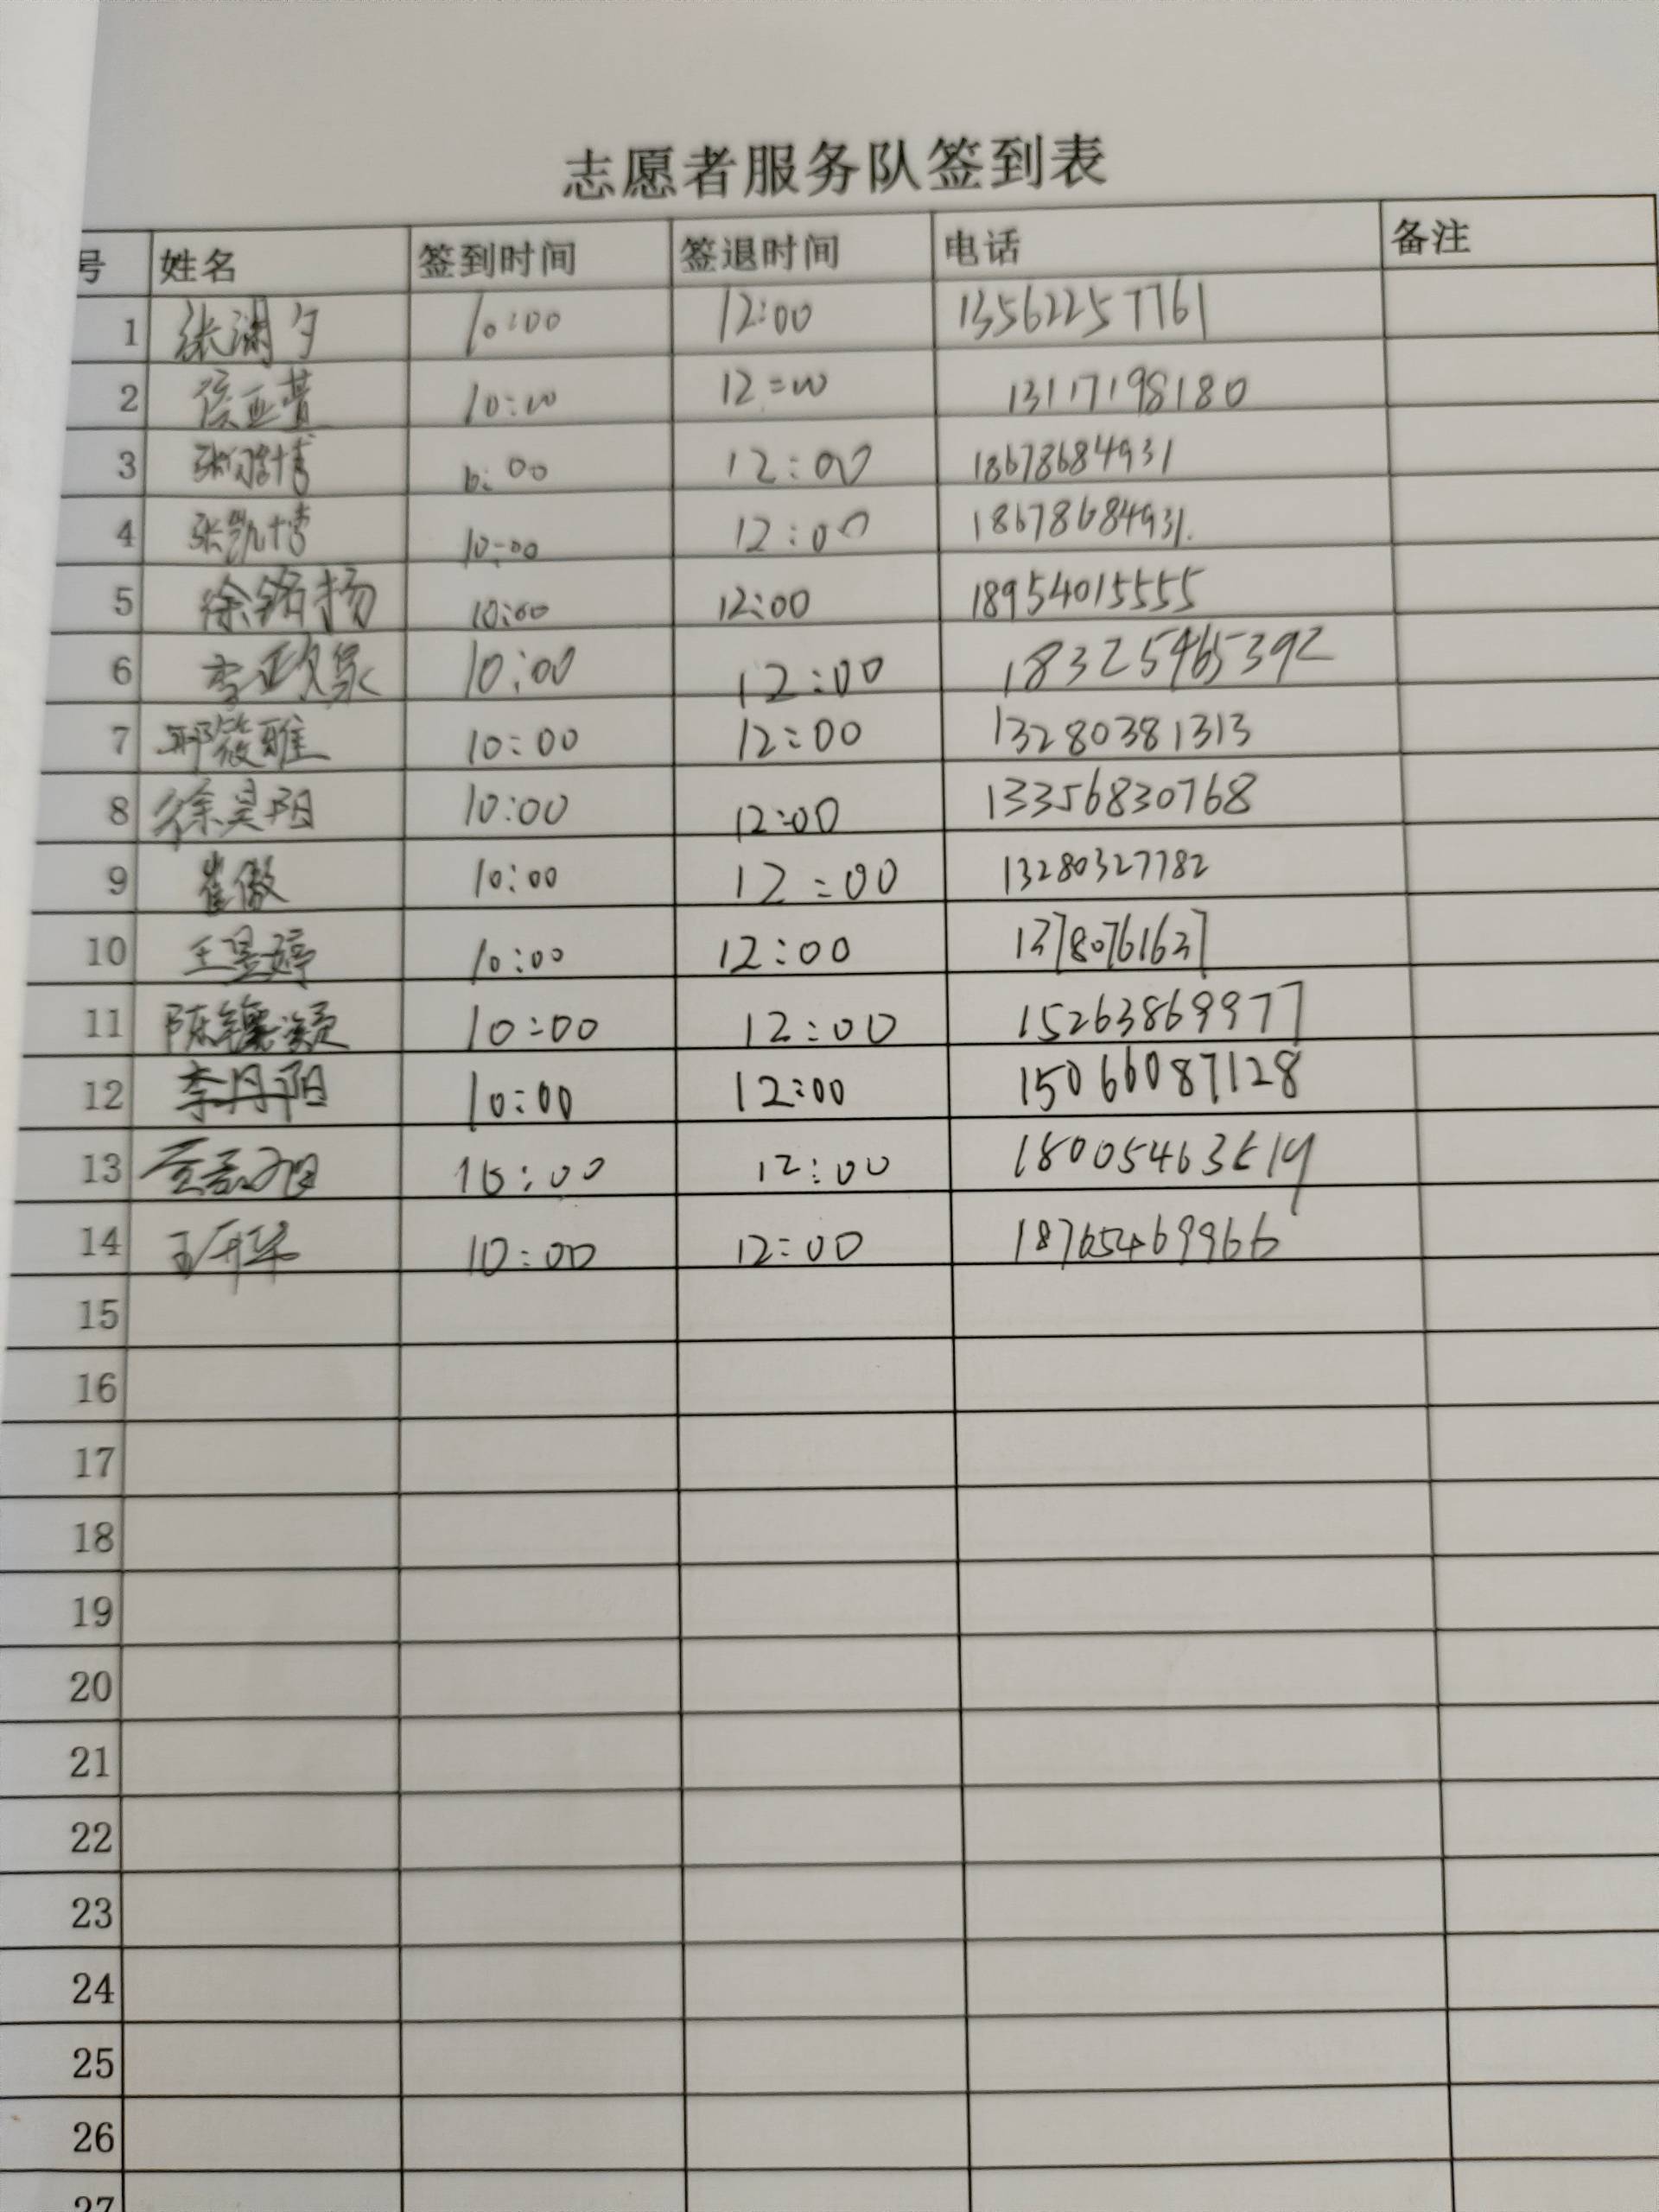 志愿者服务队签到表
号 姓名 签到时间 签退时间 电话 备注
1 张澜夕 10:00 12:00 13562257761
2 10:00 12:00 13117198180
3 10:00 12:00 18678684931
4 张凯博 10:00 12:00 18678684931.
5 徐铭扬 10:00 12:00 18954015555
6 李政泉 10:00 12:00 18325465392
7 邢筱雅 10:00 12:00 13280381313
8 徐昊阳 10:00 12:00 13356830768
9 崔傲 10:00 12:00 13280327782
10 王昱婷 10:00 12:00 13780761637
11 陈镶灏 10:00 12:00 15263869977
12 李丹阳 10:00 12:00 15066087128
13 16:00 12:00
14 王开华 10:00 12:00 18765469966
15
16
17
18
19
20
21
22
23
24
25
26
27